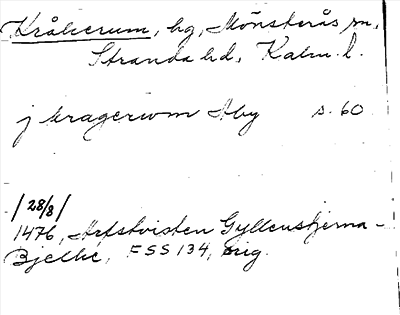 Kråkerum, hg, Mönsterås sn,
Stranda hd, Kalm. l.
j kragerwm Aby s. 60
/28/8/
1476, Arfstvisten Gyllenstjerna-
Bjelke, FSS 134, orig.